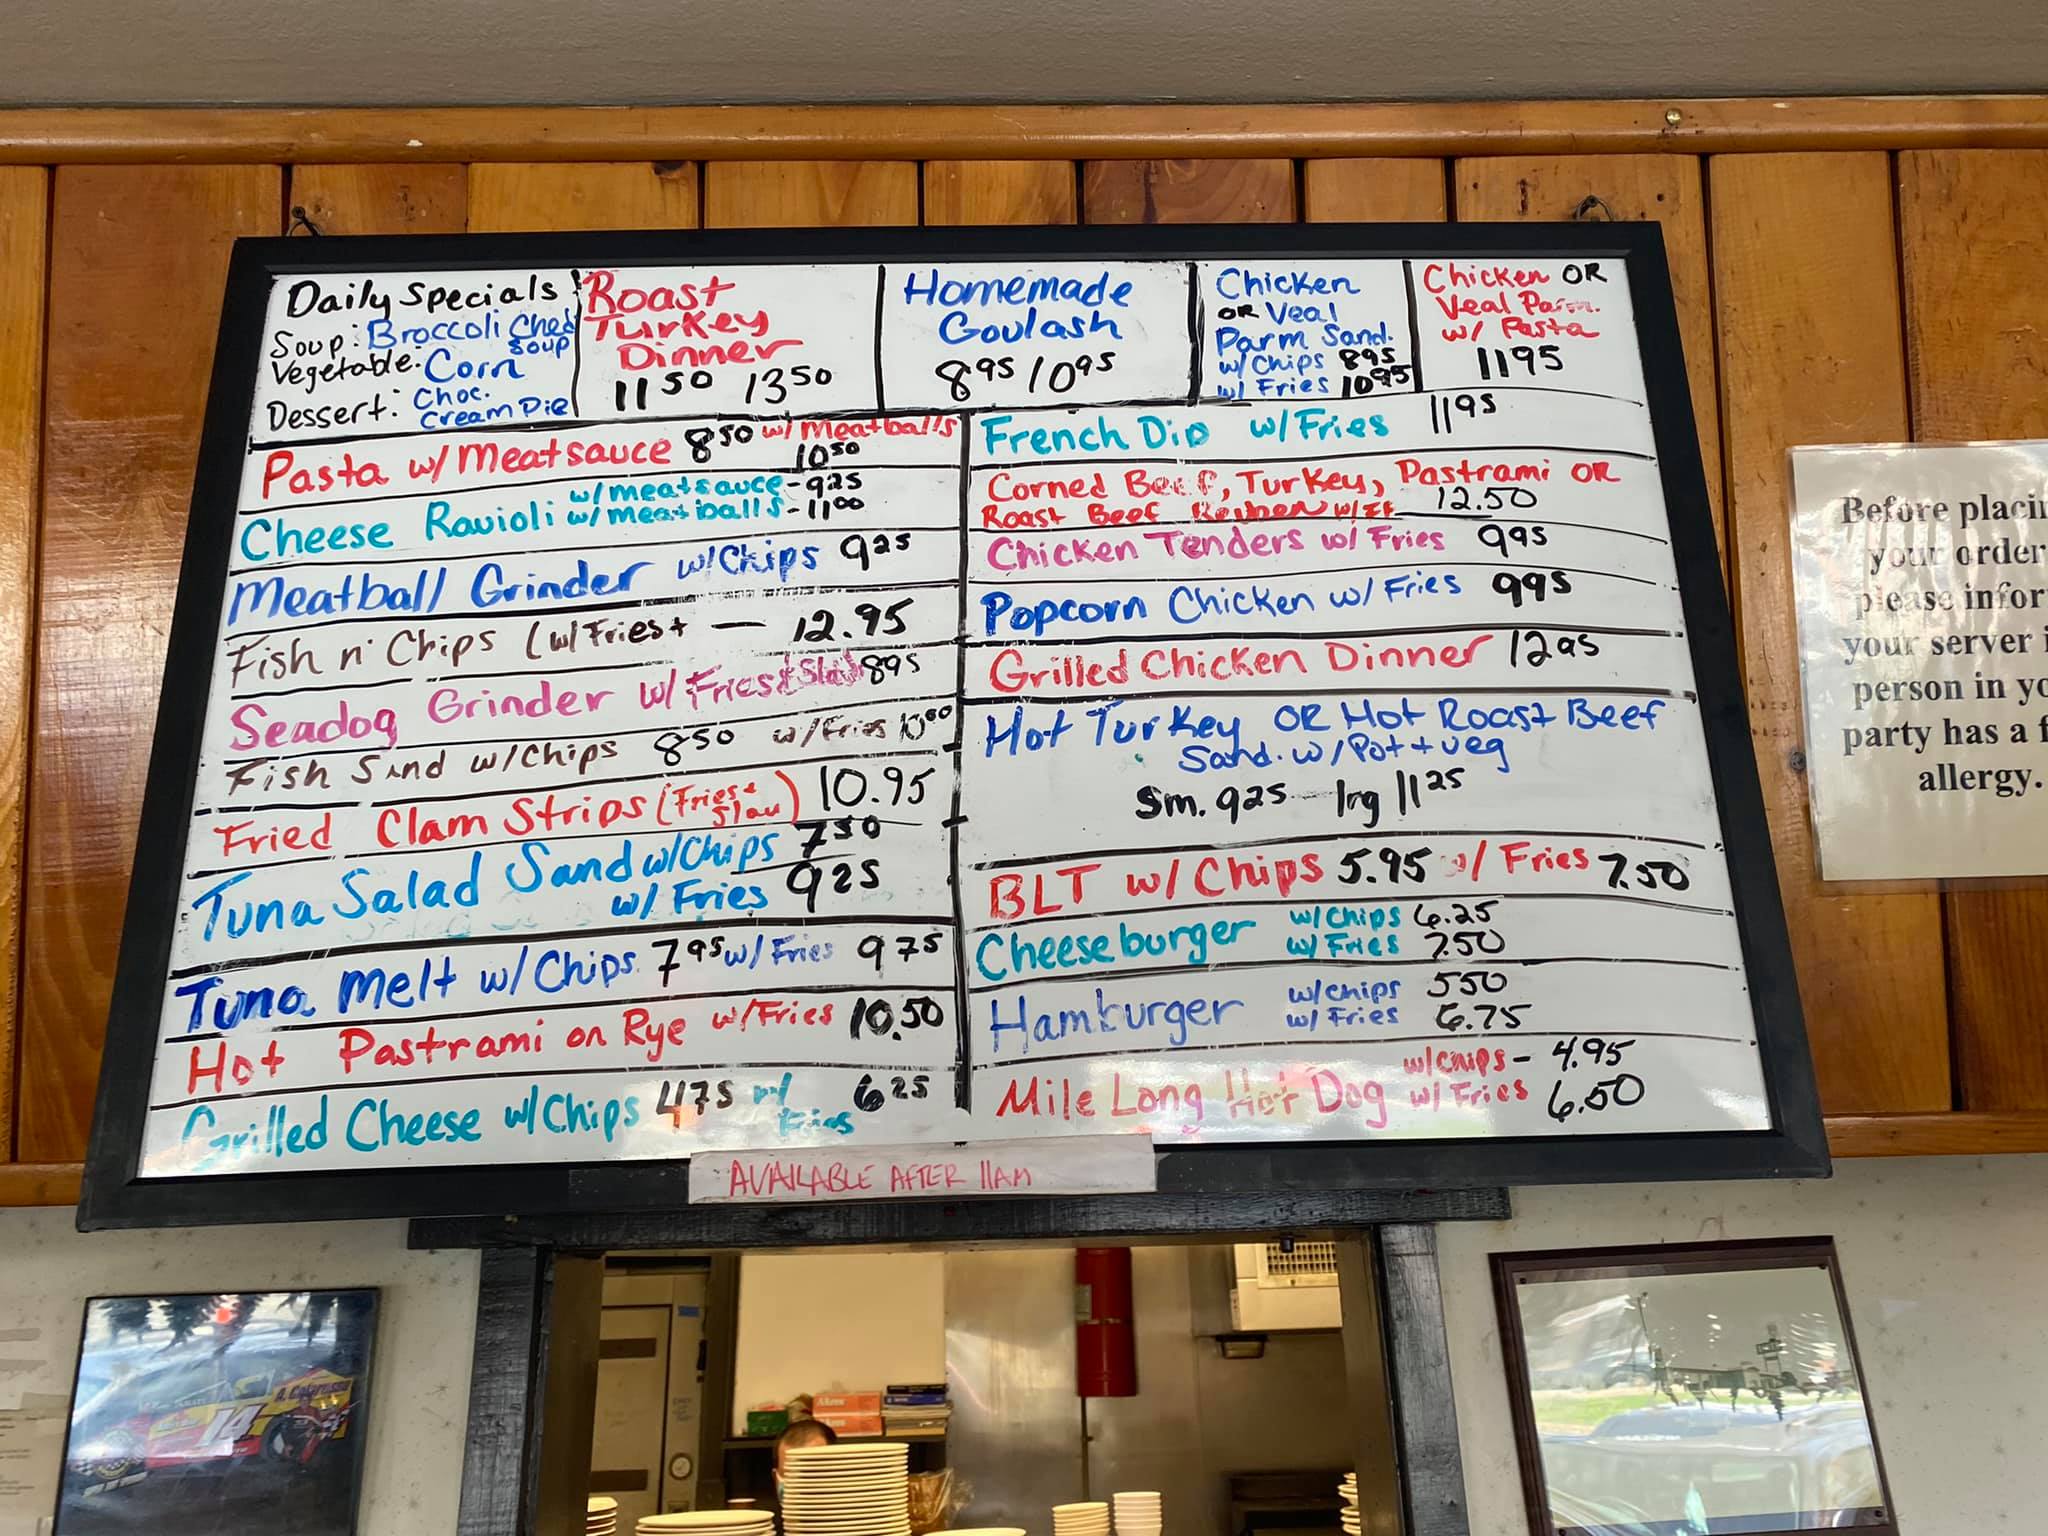 Daily Specials
Soup: Broccoli Ched
Soup
Vegetable: Corn
Dessert: Choc.
Cream Pie
Roast
Turkey
Dinner
11 50 13 50
Homemade
Goulash
8 95 / 10 95
Chicken
OR Veal
Parm Sand.
w/Chips 8 95
w/ Fries 10 95
Chicken OR
Veal Parm.
w/ Pasta
11 95
Pasta w/ Meatsauce 8 50 w/ Meatballs
10 50
Cheese Ravioli w/ meatsauce - 9 25
w/ meatballs - 11 00
Meatball Grinder w/Chips 9 25
Fish n' Chips (w/ Fries + — 12.95
Seadog Grinder w/ Fries & Slaw 8 95
Fish Sand w/Chips 8 50 w/Fries 10 00
Fried Clam Strips (Fries +
Slaw) 10.95
Tuna Salad Sand w/Chips 7 50
w/ Fries 9 25
Tuna Melt w/Chips 7 95 w/ Fries 9 75
Hot Pastrami on Rye w/Fries 10.50
Grilled Cheese w/Chips 4 75 w/
Fries 6 25
French Dip w/Fries 11 95
Corned Beef, Turkey, Pastrami OR
Roast Beef Reuben w/FF 12.50
Chicken Tenders w/ Fries 9 95
Popcorn Chicken w/ Fries 9 95
Grilled Chicken Dinner 12 95
Hot Turkey OR Hot Roast Beef
Sand. w/ Pot + veg
Sm. 9 25 lrg 11 25
BLT w/ Chips 5.95 w/ Fries 7.50
Cheeseburger w/Chips 6.25
w/ Fries 7.50
Hamburger w/chips 5 50
w/ Fries 6.75
Mile Long Hot Dog w/chips - 4.95
w/ Fries 6.50
AVAILABLE AFTER 11AM
Before placin
your order
please infor
your server i
person in yo
party has a f
allergy.
14